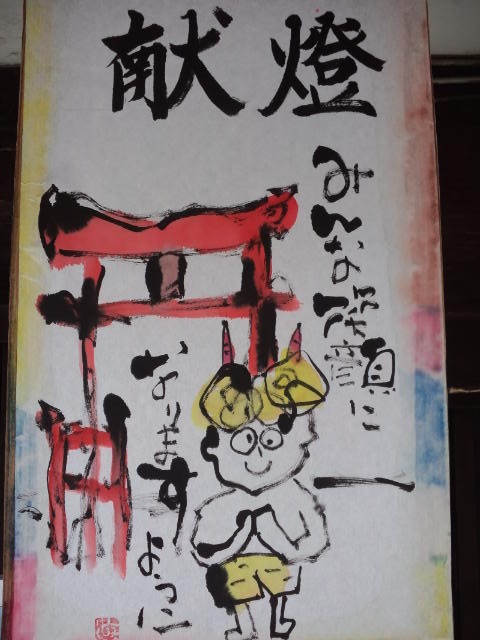 献燈
みんなの笑顔に
なりますように